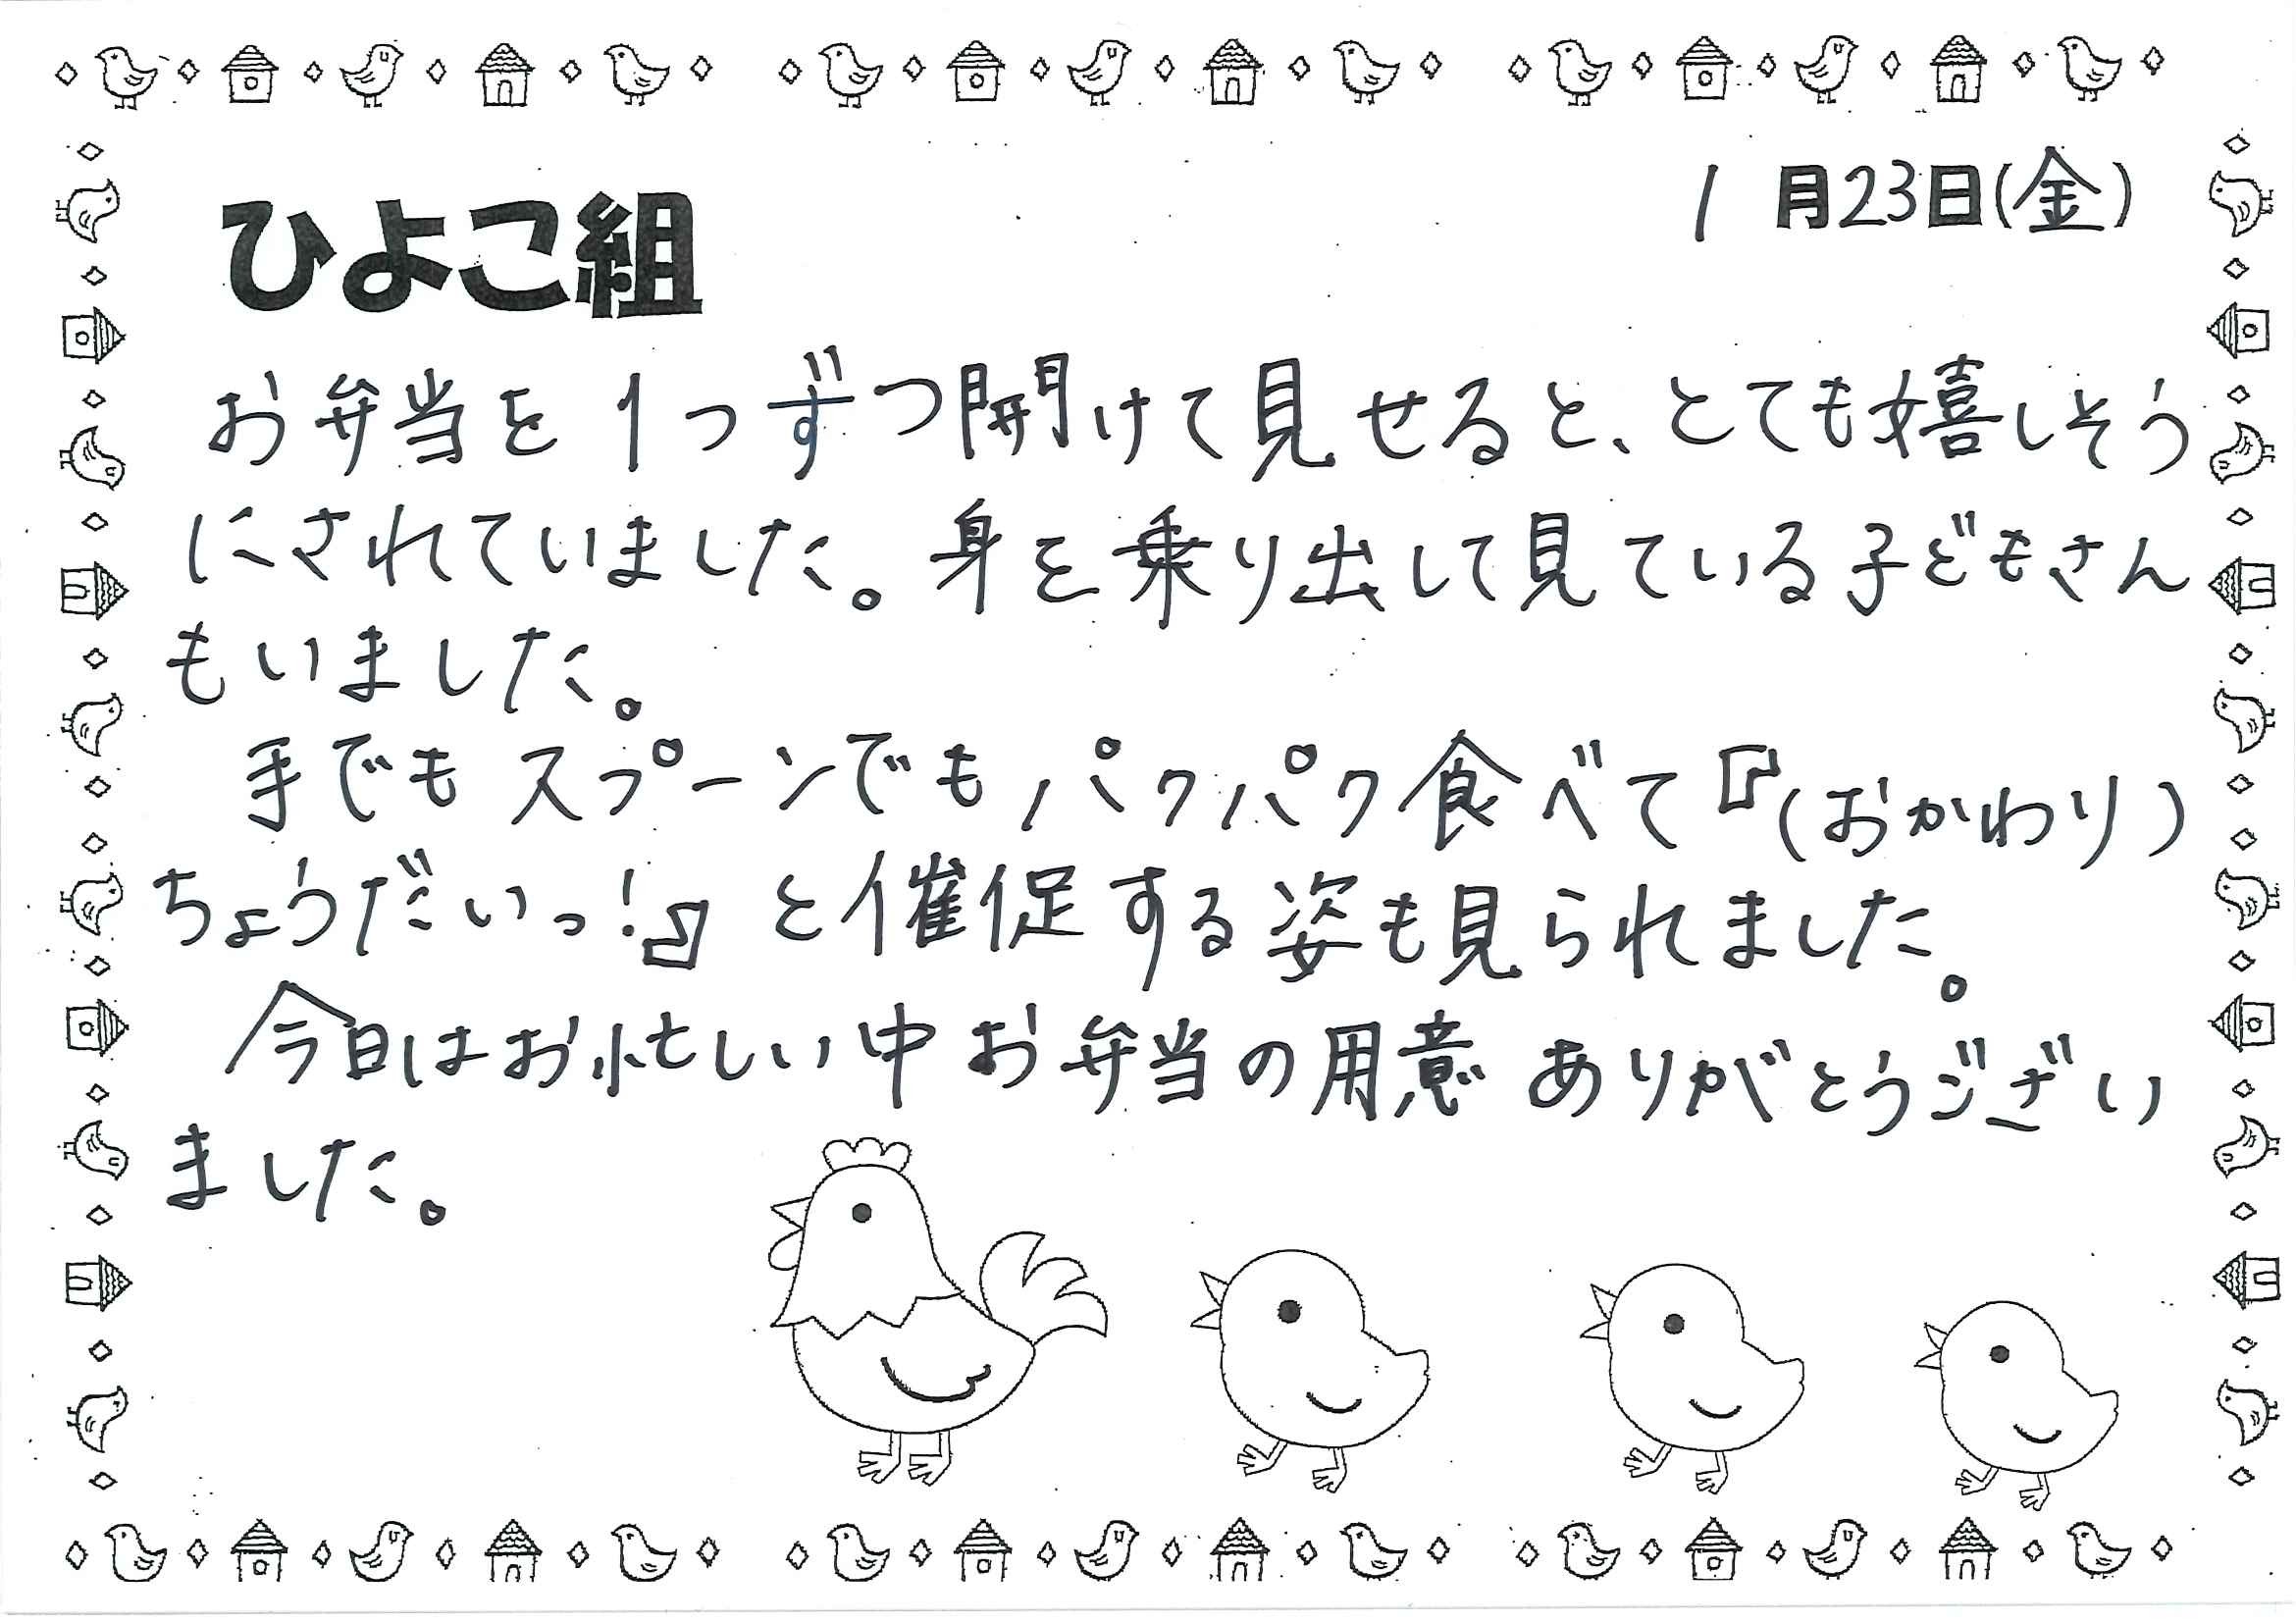 1月23日(金)
ひよこ組
お弁当を1つずつ開けて見せると、とても嬉しそう
にされていました。身を乗り出して見ている子どもさん
もいました。
手でもスプーンでもパクパク食べて『(おかわり)
ちょうだいっ!』と催促する姿も見られました。
今日はお忙しい中お弁当の用意ありがとうござい
ました。